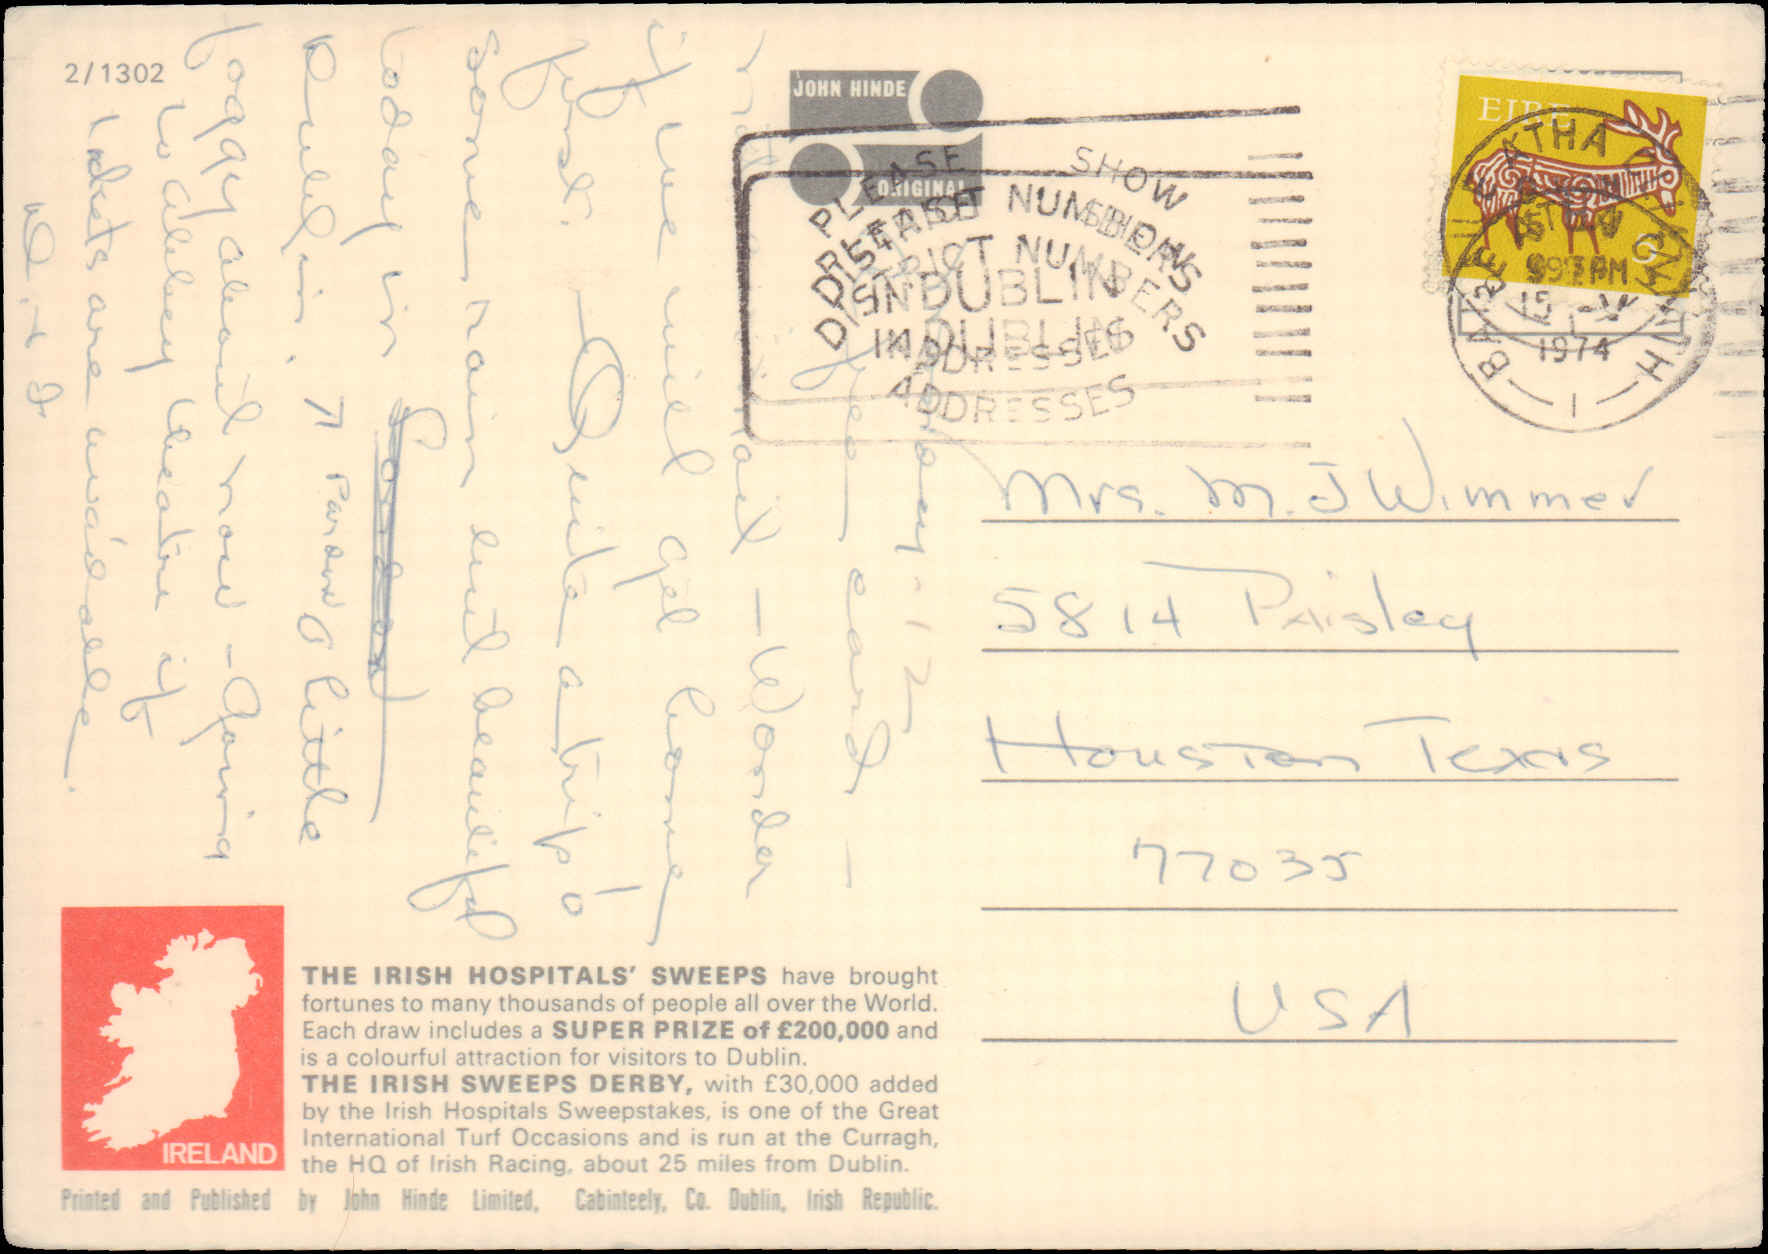 2/1302
JOHN HINDE
ORIGINAL
PLEASE SHOW
DISTRICT NUMBERS
IN DUBLIN
ADDRESSES
PLEASE SHOW
DISTRICT NUMBERS
IN DUBLIN
ADDRESSES
EIRE
6
BAILE ATHA CLIATH
1974
1
12
card -
mail - Wonder
if we will get home
first. - Quite a trip!
Some rain but beautiful
today in London
Dublin. 7 Parow little
foggy about now - Going
to abbey theatre if
tickets are available.
Mrs. M. J Wimmer
5814 Paisley
Houston Texas
77035
USA
IRELAND
THE IRISH HOSPITALS' SWEEPS have brought
fortunes to many thousands of people all over the World.
Each draw includes a SUPER PRIZE of £200,000 and
is a colourful attraction for visitors to Dublin.
THE IRISH SWEEPS DERBY, with £30,000 added
by the Irish Hospitals Sweepstakes, is one of the Great
International Turf Occasions and is run at the Curragh,
the HQ of Irish Racing, about 25 miles from Dublin.
Printed and Published by John Hinde Limited, Cabinteely, Co. Dublin, Irish Republic.